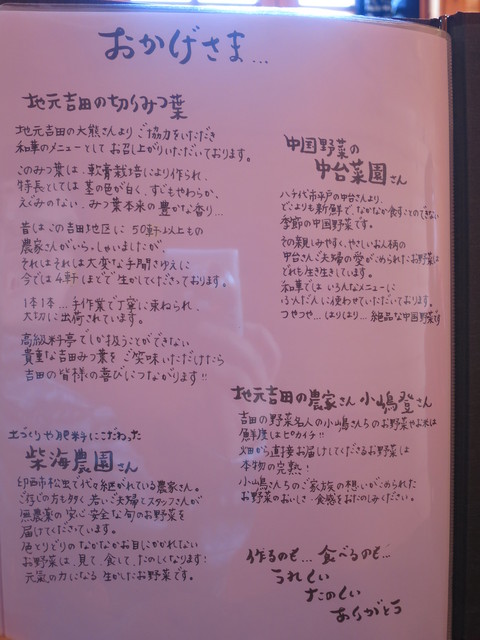 おかげさま…
地元吉田の切りみつ葉
地元吉田の大熊さんよりご協力をいただき
和華のメニューとしてお召し上がりいただいております。
このみつ葉は、軟膏栽培により作られ、
特長としては茎の色が白く、すじもやわらか、
えぐみのない、みつ葉本来の豊かな香り…
昔はこの吉田地区に50軒以上もの
農家さんがいらっしゃいましたが、
それはそれは大変な手間ひまゆえに
今では4軒ほどで生かしてくださっております。
1本1本…手作業で丁寧に束ねられ、
大切に出荷されています。
高級料亭でしか扱うことができない
貴重な吉田みつ葉をご笑味いただけたら
吉田の皆様の喜びにつながります!!
土づくりや肥料にこだわった
柴海農園さん
印西市松虫で代々継がれている農家さん。
ご存じの方も多く、若いご夫婦とスタッフさんが
無農薬の安心安全な旬のお野菜を
届けてくださっています。
色とりどりのなかなかお目にかかれない
お野菜は、見て、食して、たのしくなります!
元氣の力になる生かしたお野菜です。
中国野菜の
中台菜園さん
八千代市平戸の中台さんより、
どこよりも新鮮で、なかなか食すことのできない
季節の中国野菜です。
その親しみやすく、やさしいお人柄の
中台さんご夫婦の愛がこめられたお野菜は
どれも生き生きしています。
和華ではいろんなメニューに
ふんだんに使わせていただいております。
つやつや…はりはり…絶品な中国野菜です
地元吉田の農家さん 小嶋登さん
吉田の野菜名人の小嶋さんちのお野菜やお米は
鮮度はピカイチ!!
畑から直接お届けしてくださるお野菜は
本物の完熟!
小嶋さんちのご家族の想いがこめられた
お野菜のおいしさ・食感をおたのしみください。
作るのも…食べるのも…
うれしい
たのしい
ありがとう